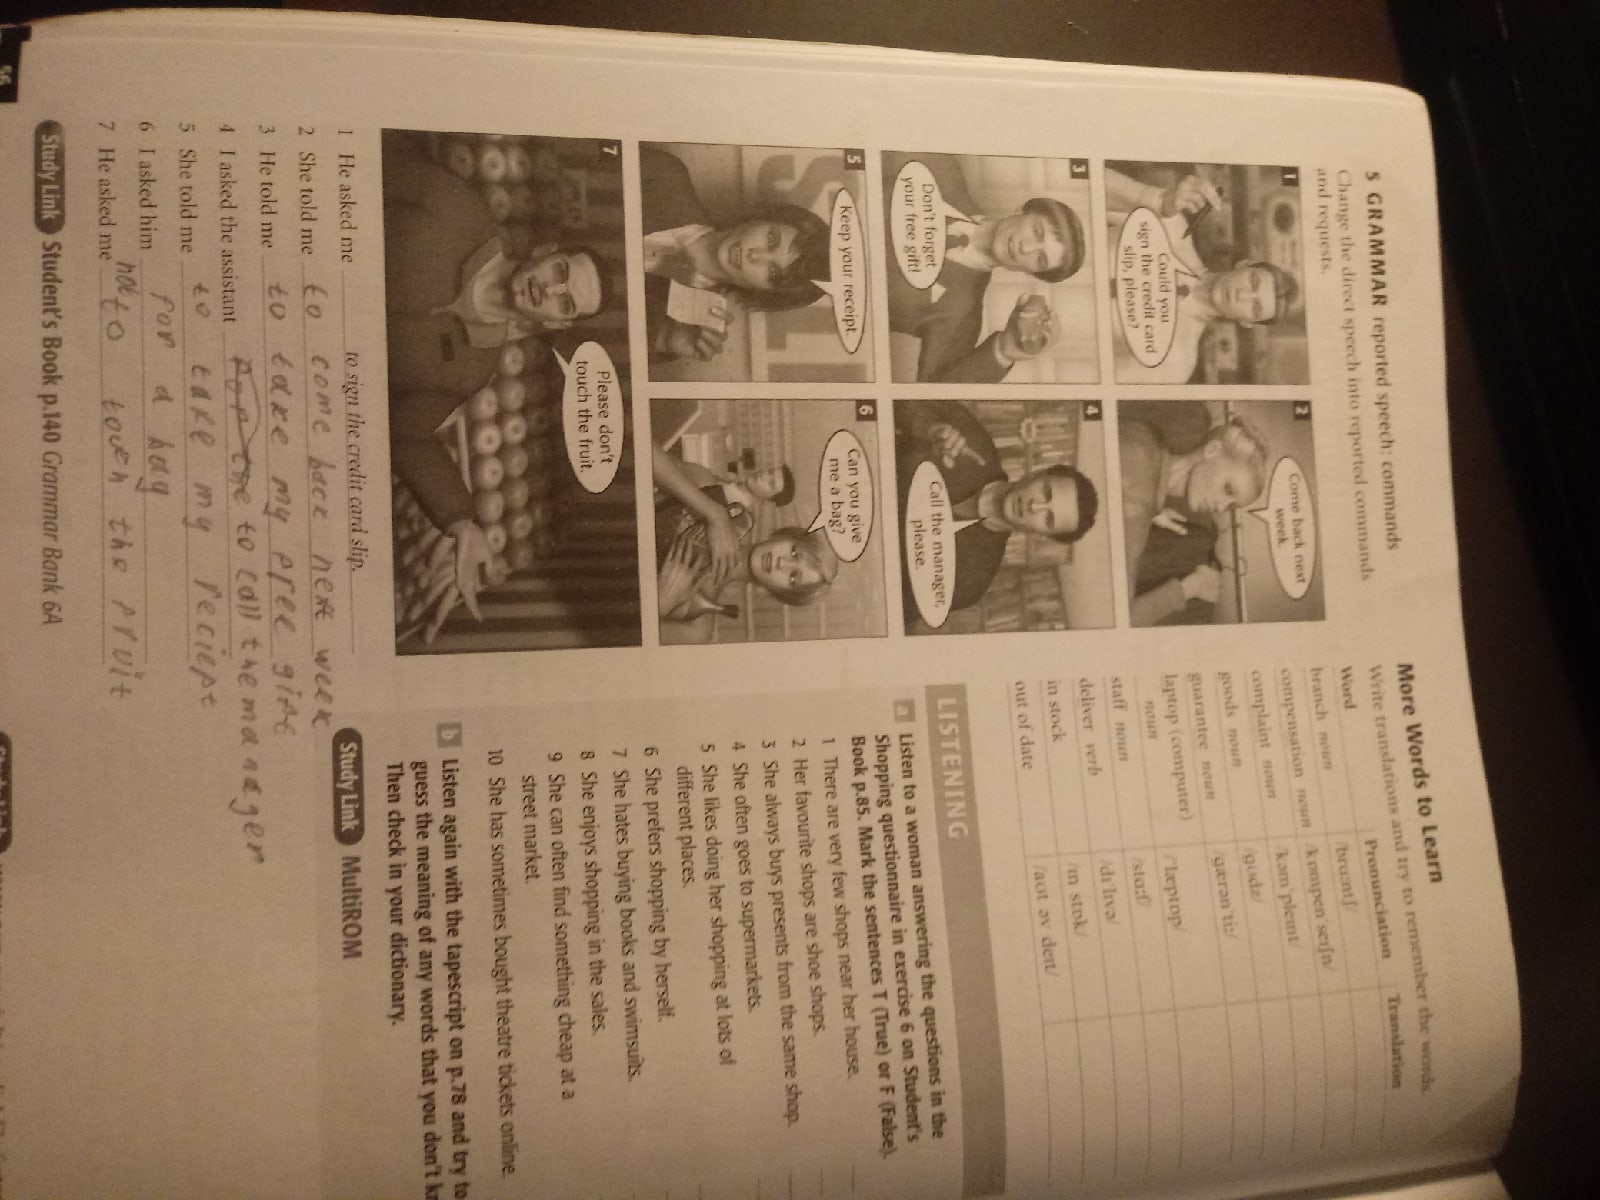 5 GRAMMAR reported speech: commands
Change the direct speech into reported commands
and requests.
1
Could you
sign the credit card
slip, please?
2
Come back next
week.
3
Don't forget
your free gift!
4
Call the manager,
please.
5
Keep your receipt.
6
Can you give
me a bag?
7
Please don't
touch the fruit.
1 He asked me to sign the credit card slip.
2 She told me to come back next week
3 He told me to take my free gift
4 I asked the assistant to call the manager
5 She told me to take my reciept
6 I asked him for a bag
7 He asked me not to touch the fruit
Study Link Student's Book p.140 Grammar Bank 6A
56
More Words to Learn
Write translations and try to remember the words.
Word Pronunciation Translation
branch noun /brɑːntʃ/
compensation noun /kɒmpenˈseɪʃn/
complaint noun /kəmˈpleɪnt/
goods noun /ɡʊdz/
guarantee noun /ɡærənˈtiː/
laptop (computer) /ˈlæptɒp/
noun
staff noun /stɑːf/
deliver verb /dɪˈlɪvə/
in stock /ɪn stɒk/
out of date /aʊt əv deɪt/
LISTENING
a Listen to a woman answering the questions in the
Shopping questionnaire in exercise 6 on Student's
Book p.85. Mark the sentences T (True) or F (False).
1 There are very few shops near her house.
2 Her favourite shops are shoe shops.
3 She always buys presents from the same shop.
4 She often goes to supermarkets.
5 She likes doing her shopping at lots of
different places.
6 She prefers shopping by herself.
7 She hates buying books and swimsuits.
8 She enjoys shopping in the sales.
9 She can often find something cheap at a
street market.
10 She has sometimes bought theatre tickets online.
b Listen again with the tapescript on p.78 and try to
guess the meaning of any words that you don't
Then check in your dictionary.
Study Link MultiROM